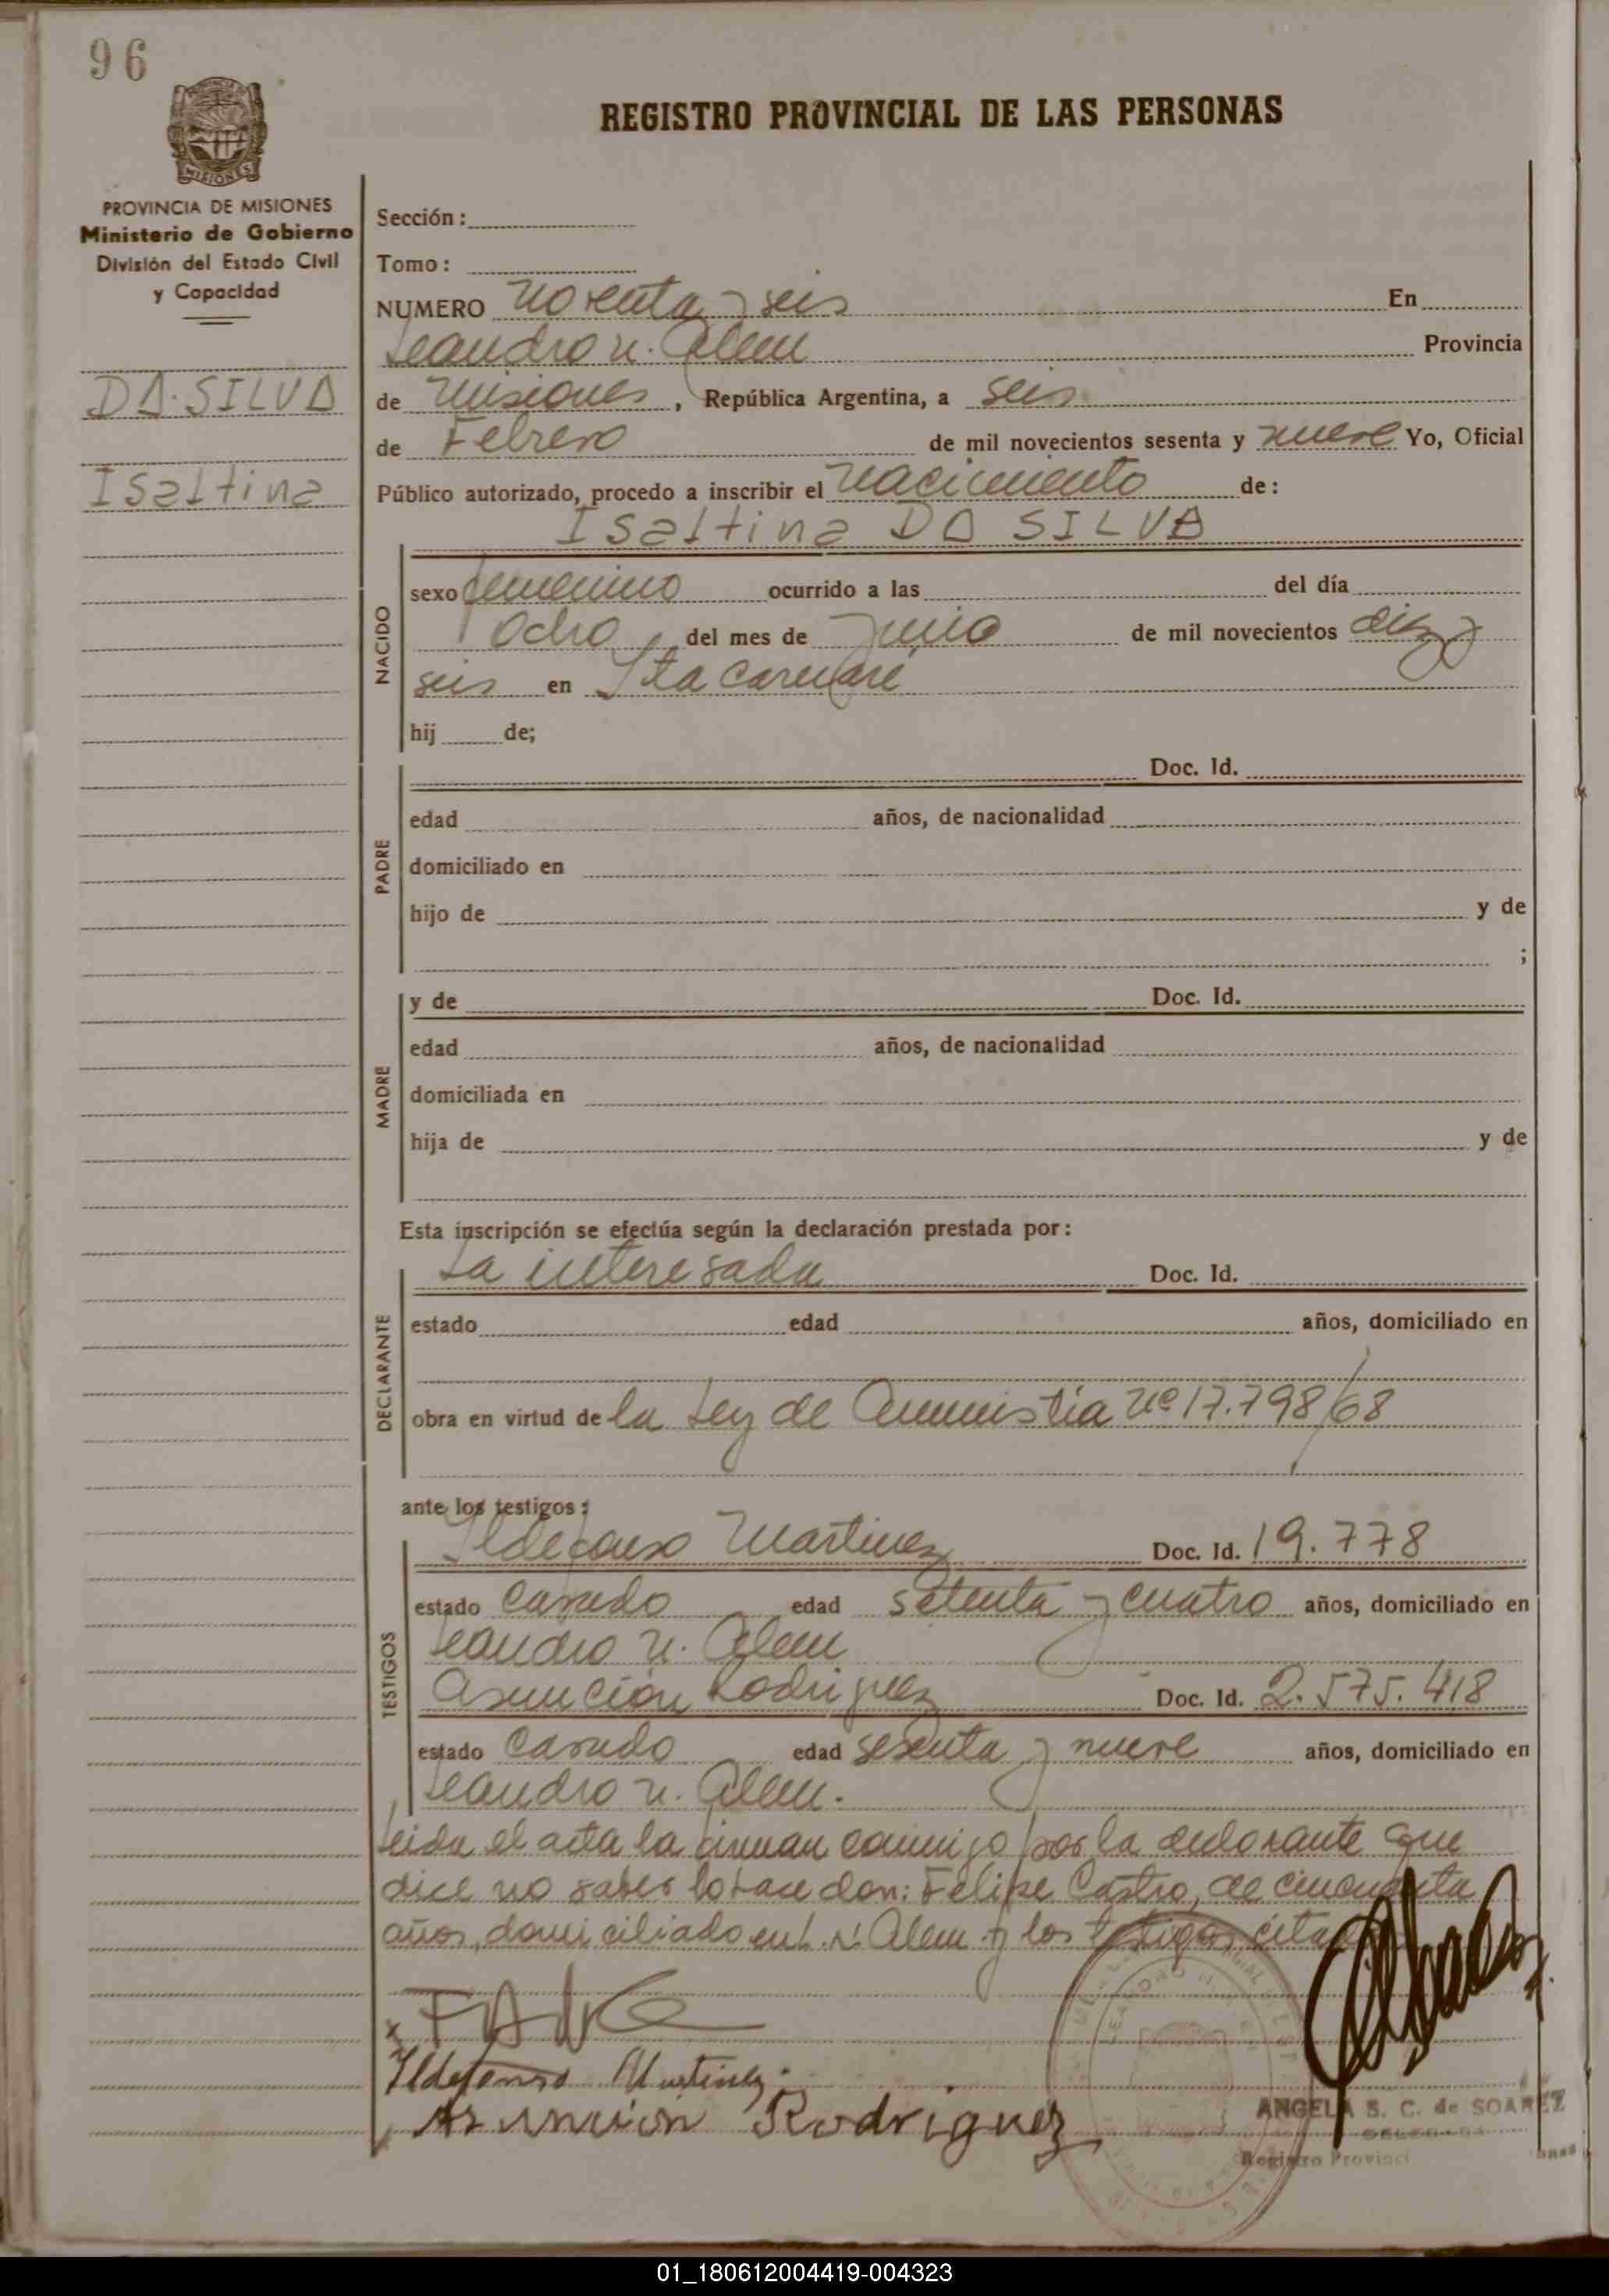 96
REGISTRO PROVINCIAL DE LAS PERSONAS
MISIONES
PROVINCIA DE MISIONES
Ministerio de Gobierno
División del Estado Civil
y Capacidad
DA SILVA
Isaltina
Sección:
Tomo:
NUMERO Noventa y seis En
Leandro N. Alem Provincia
de Misiones, República Argentina, a seis
de Febrero de mil novecientos sesenta y nueve Yo, Oficial
Público autorizado, procedo a inscribir el nacimiento de:
Isaltina DA SILVA
NACIDO
sexo femenino ocurrido a las del día
Ocho del mes de Junio de mil novecientos diez y
seis en Itacaruaré
hij de;
Doc. Id.
PADRE
edad años, de nacionalidad
domiciliado en
hijo de y de
;
y de Doc. Id.
MADRE
edad años, de nacionalidad
domiciliada en
hija de y de
Esta inscripción se efectúa según la declaración prestada por:
La interesada Doc. Id.
DECLARANTE
estado edad años, domiciliado en
obra en virtud de la Ley de Amnistia Nº 17.798/68
ante los testigos:
Ildefonso Martinez Doc. Id. 19.778
TESTIGOS
estado Casado edad setenta y cuatro años, domiciliado en
Leandro N. Alem
Asunción Rodriguez Doc. Id. 2.575.418
estado Casado edad sesenta y nueve años, domiciliado en
Leandro N. Alem.
Leida el acta la firman conmigo por la que
dice no saber lo hace don: Felipe Castro, de cincuenta
años, domiciliado en L. N. Alem y los testigos
Ildefonso Martinez
Asuncion Rodriguez
ANGELA S. C. de SOAREZ
DELEGADA
Registro Provinci
01_180612004419-004323